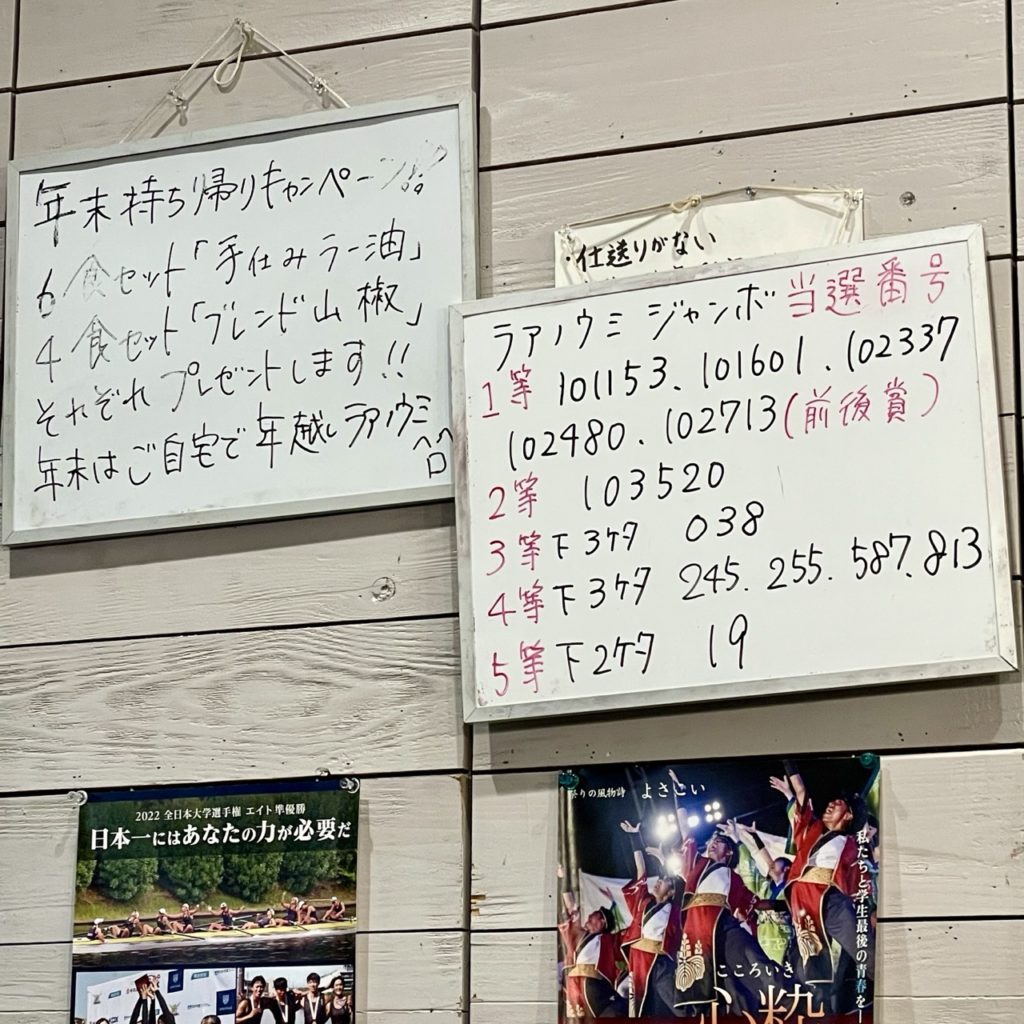 年末持ち帰りキャンペーン!!
6食セット「手仕込みラー油」
4食セット「ブレンド山椒」
それぞれプレゼントします!!
年末はご自宅で年越しラアノウミ
・仕送りがない
ラアノウミ ジャンボ 当選番号
1等 101153、101601、102337
102480、102713(前後賞)
2等 103520
3等下3ケタ 038
4等下3ケタ 245.255.587.813
5等下2ケタ 19
2022 全日本大学選手権 エイト準優勝
日本一にはあなたの力が必要だ
祭りの風物詩 よさこい
私たちと学生最後の青春を
こころいき
心粋